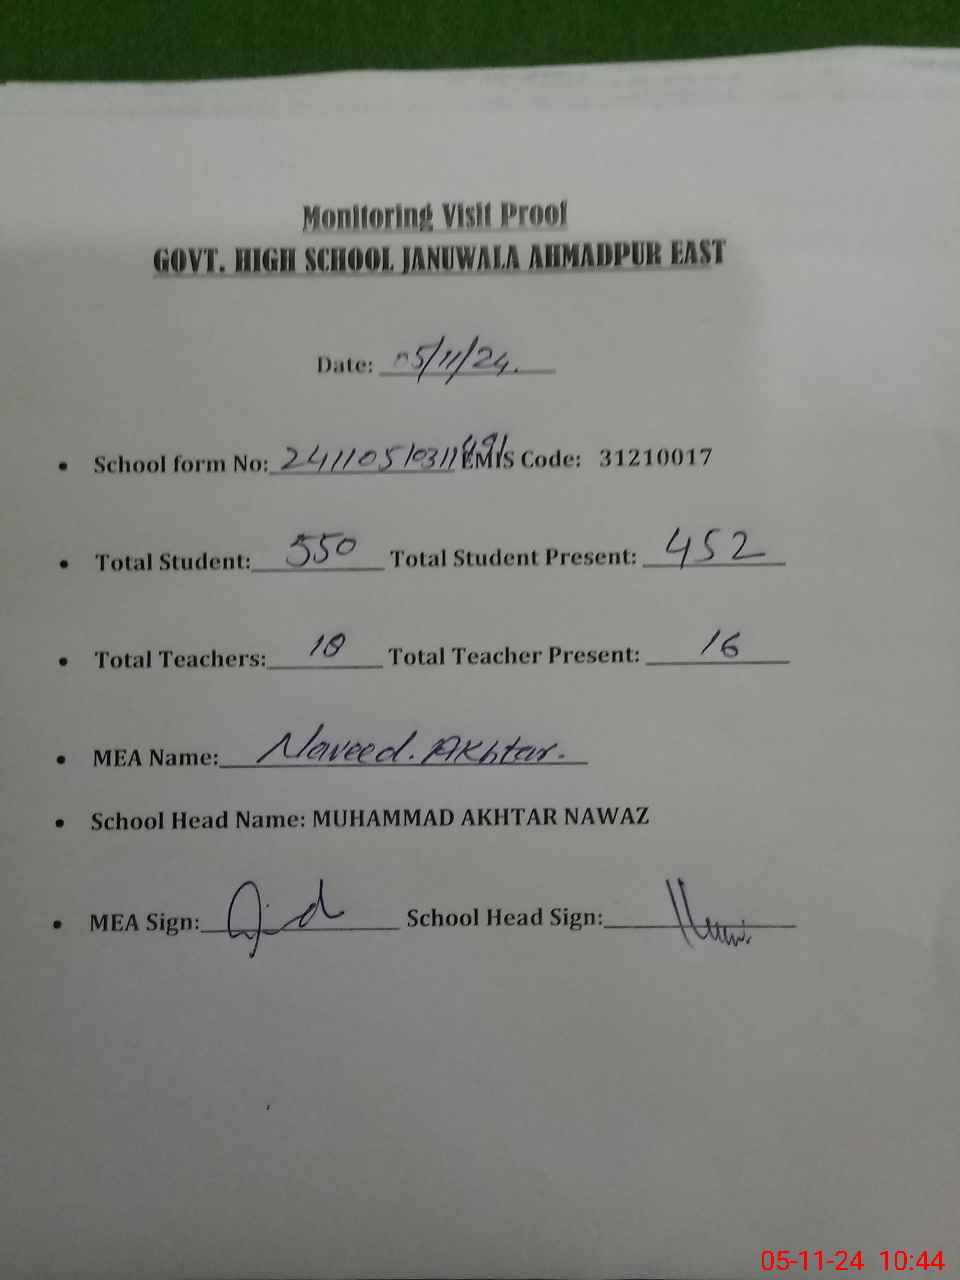 Monitoring Visit Proof
GOVT. HIGH SCHOOL JANUWALA AHMADPUR EAST
Date: 05/11/24.
• School form No: EMIS Code: 31210017
• Total Student: 550 Total Student Present: 452
• Total Teachers: 18 Total Teacher Present: 16
• MEA Name: Naveed. Akhtar.
• School Head Name: MUHAMMAD AKHTAR NAWAZ
• MEA Sign: School Head Sign:
05-11-24 10:44